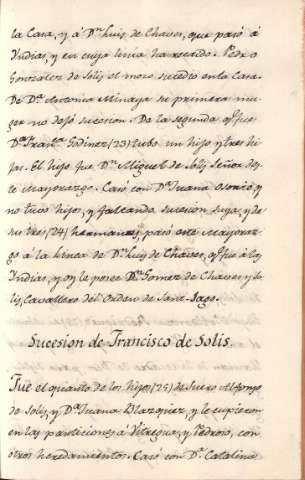 la Casa, y á Dⁿ Luis de Chaves, que pasó á
Yndias, y en cuya linia ha recaido. Pedro
Gonzalez de Solis el mozo sucedio en la Casa.
De Dª Antonia Minaya su primera mu-
ger no dejó sucesion. De la segunda q̃ fue
Dª Franᶜᵃ Godinez (23) tubo un hijo y tres hi-
jas. El hijo fue Dⁿ Miguel de Solis Señor des-
te Mayorazgo. Casó con Dª Juana Osorio, y
no tubo hijos, y faltando sucesion suya, y de
sus tres (24) hermanas, pasó este Mayoraz-
go á la linea de Dⁿ Luis de Chaves, q̃ fue á las
Yndias, y oy le posee Dⁿ Gomez de Chaves y So-
lis, Cavallero del Orden de Sant-Iago.
Sucesion de Francisco de Solis.
Fue el quarto de los hijos (25) de Suero Alfonso
de Solis, y Dª Juana Blazquez, y le cupieron
en las particiones á Vitregua, y Pedroso, con
otros heredamientos. Casó con Dª Catalina